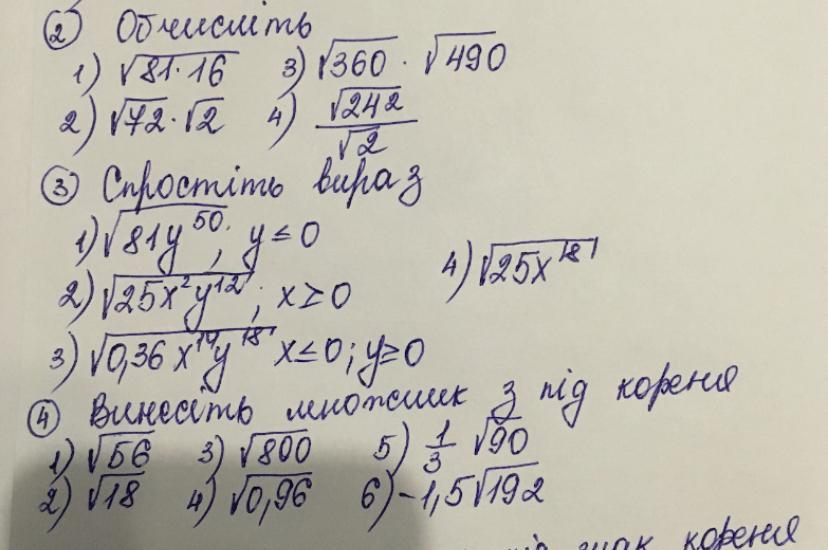 ② Обчисліть
1) √81·16 3) √360 · √490
2) √72·√2 4) √242/√2
③ Спростіть вираз
1) √81y⁵⁰, y ≤ 0
2) √25x²y¹², x ≥ 0 4) √25x¹⁸
3) √0,36x¹⁴y¹⁸ x≤0; y≥0
④ Винесіть множник з під кореня
1) √56 3) √800 5) 1/3 √90
2) √18 4) √0,96 6) -1,5√192
знак кореня